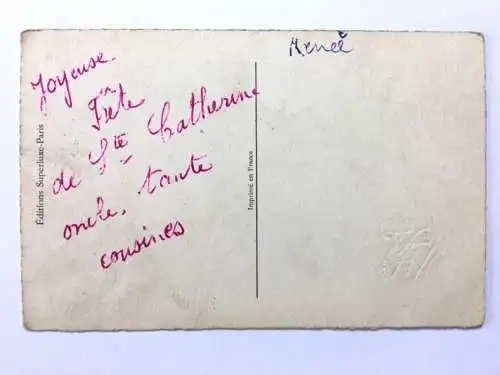 Joyeuse
Fête
de Ste Catherine
oncle, tante
cousines
Renée
Editions Superluxe-Paris
Imprimé en France